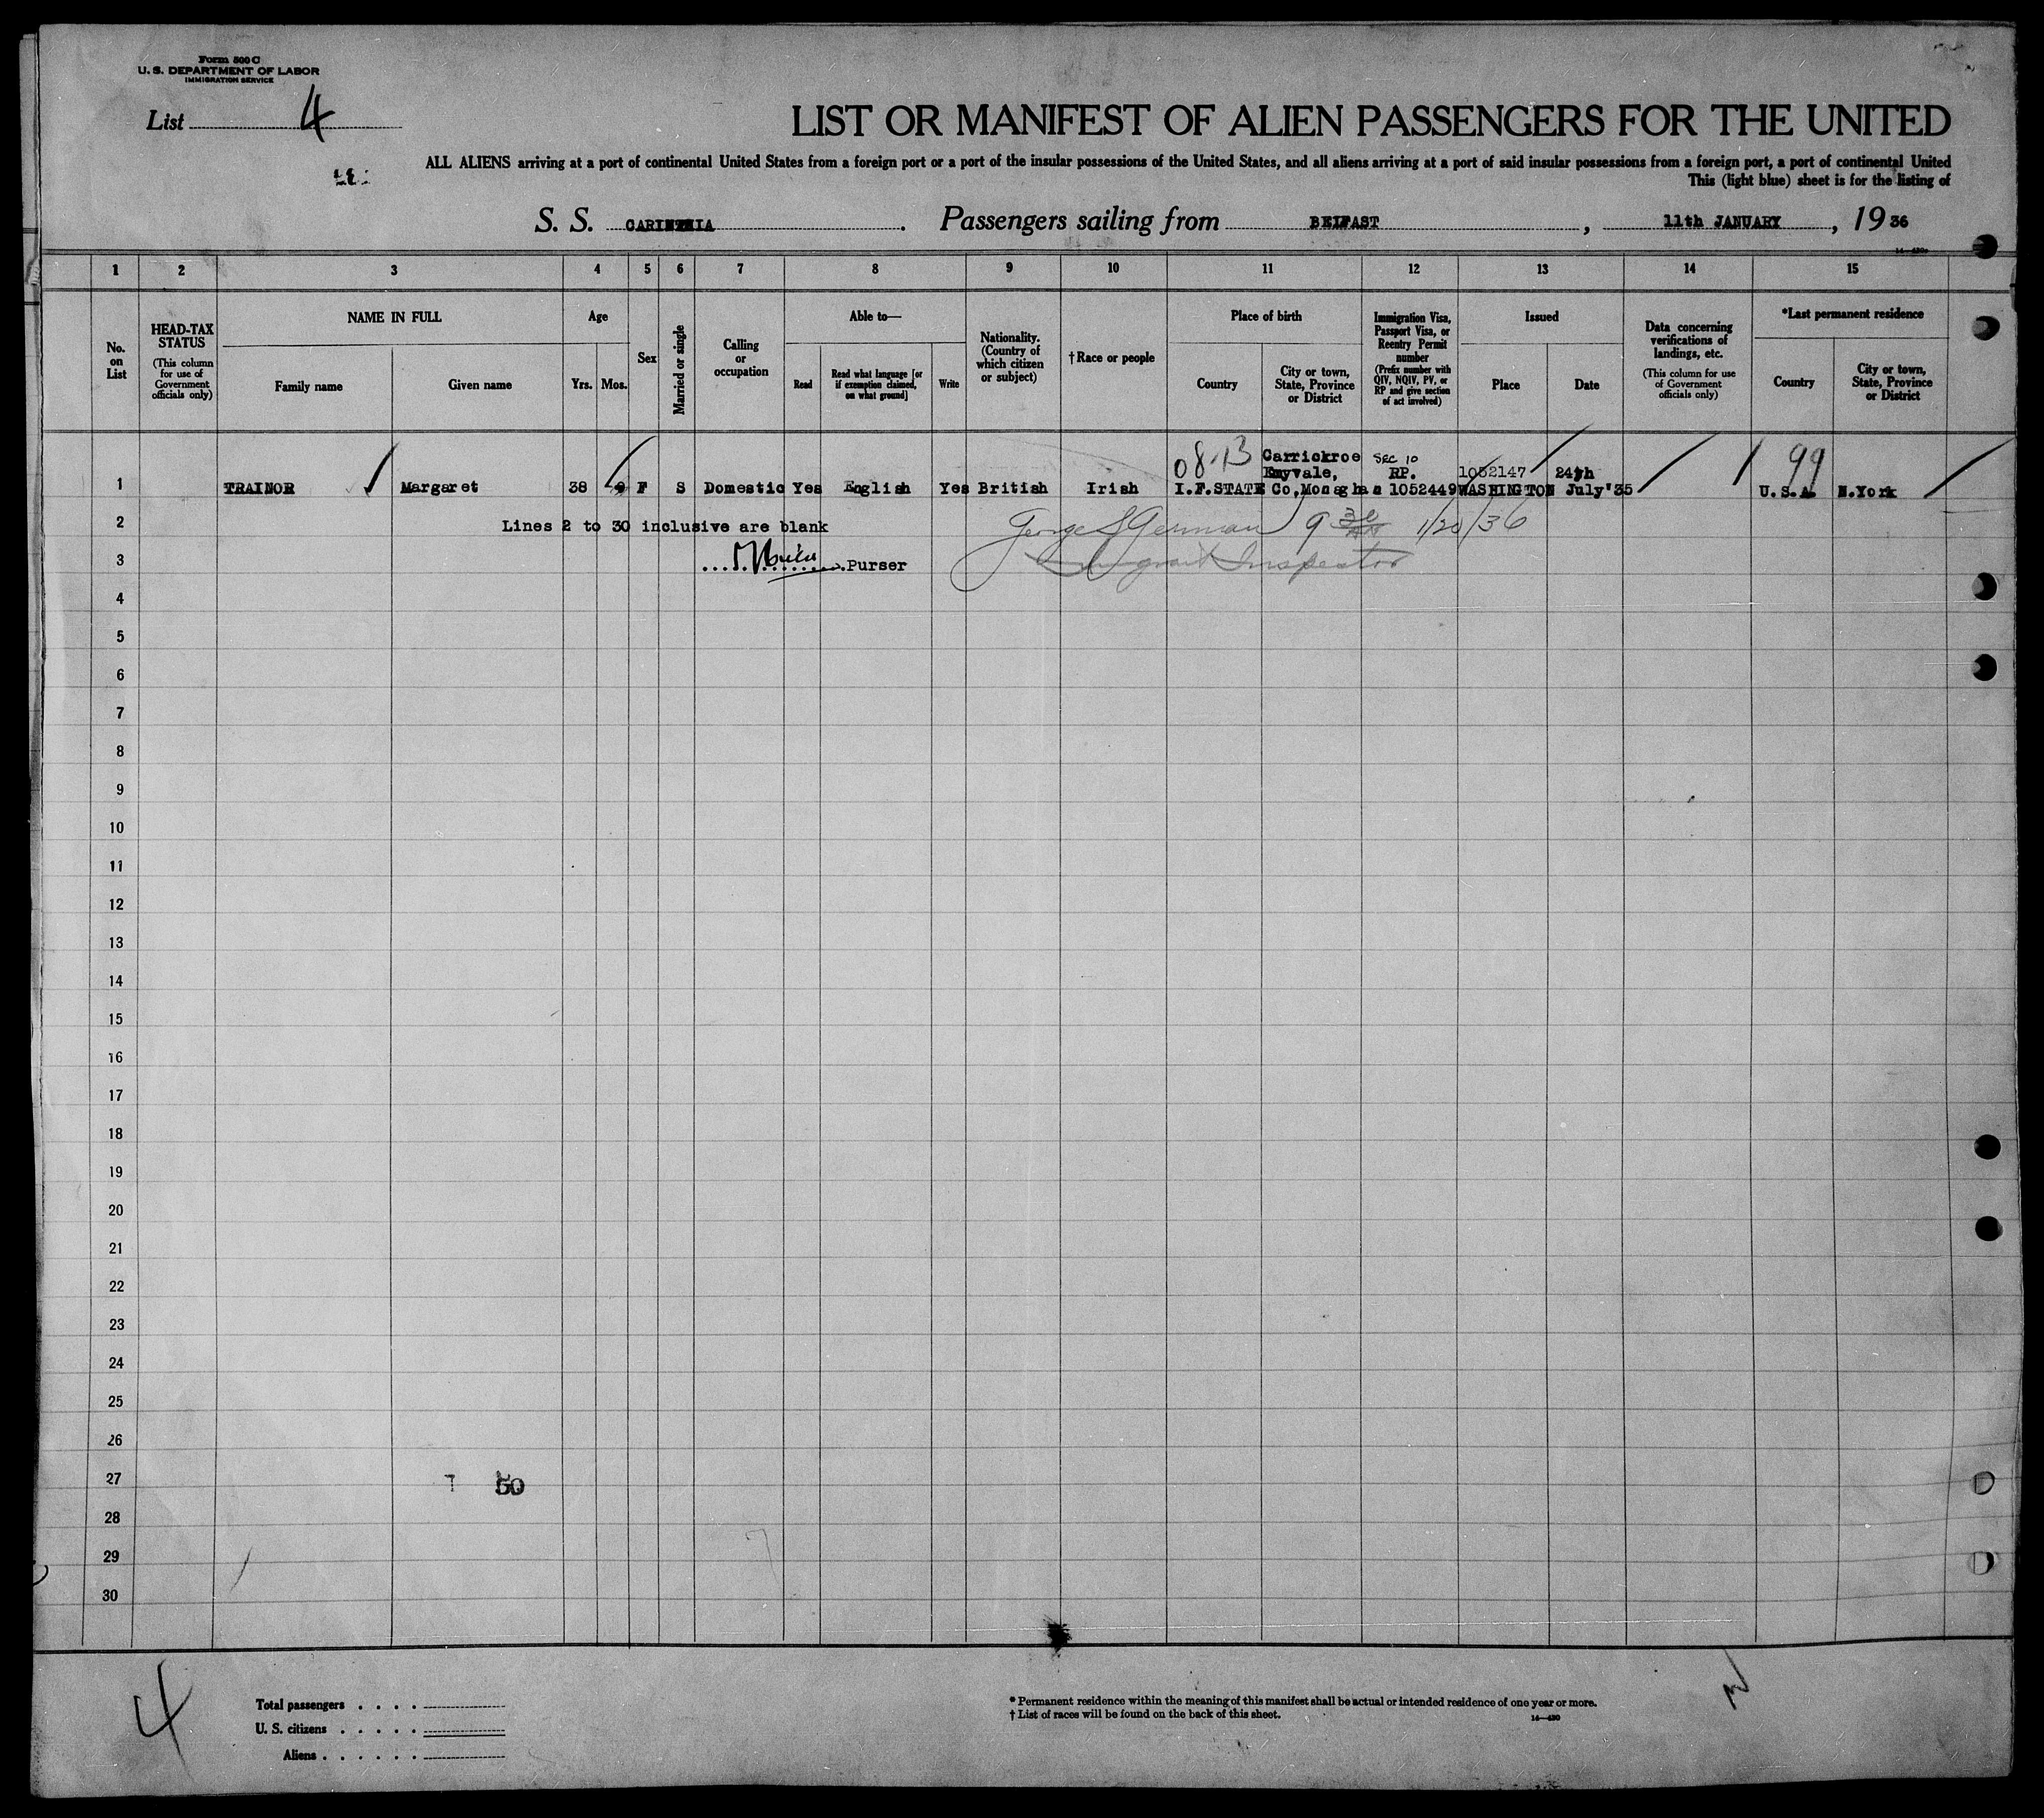 Form 500 C
U. S. DEPARTMENT OF LABOR
IMMIGRATION SERVICE
List 4
LIST OR MANIFEST OF ALIEN PASSENGERS FOR THE UNITED
ALL ALIENS arriving at a port of continental United States from a foreign port or a port of the insular possessions of the United States, and all aliens arriving at a port of said insular possessions from a foreign port, a port of continental United
This (light blue) sheet is for the listing of
S. S. CARINTHIA. Passengers sailing from BELFAST, 11th JANUARY, 19 36
1 2 3 4 5 6 7 8 9 10 11 12 13 14 15
No. on List
HEAD-TAX STATUS
(This column for use of Government officials only)
NAME IN FULL
Family name
Given name
Age
Yrs.
Mos.
Sex
Married or single
Calling or occupation
Able to—
Read
Read what language [or if exemption claimed, on what ground]
Write
Nationality. (Country of which citizen or subject)
†Race or people
Place of birth
Country
City or town, State, Province or District
Immigration Visa, Passport Visa, or Reentry Permit number
(Prefix number with QIV, NQIV, PV, or RP and give section of act involved)
Issued
Place
Date
Data concerning verifications of landings, etc.
(This column for use of Government officials only)
*Last permanent residence
Country
City or town, State, Province or District
08-13 Carrickroe Sec 10 99
Emyvale, RP. 1052147 24th
1 TRAINOR Margaret 38 9 F S Domestic Yes English Yes British Irish I.F.STATE Co,Monaghan 1052449 WASHINGTON July'35 U.S.A. N.York
2 Lines 2 to 30 inclusive are blank George S German 9 30 AM 1/20/36
3 Purser Immigrant Inspector
4
5
6
7
8
9
10
11
12
13
14
15
16
17
18
19
20
21
22
23
24
25
26
27 50
28
29
30
4
Total passengers . . . .
U. S. citizens . . . . .
Aliens . . . . . .
* Permanent residence within the meaning of this manifest shall be actual or intended residence of one year or more.
† List of races will be found on the back of this sheet.
14—430